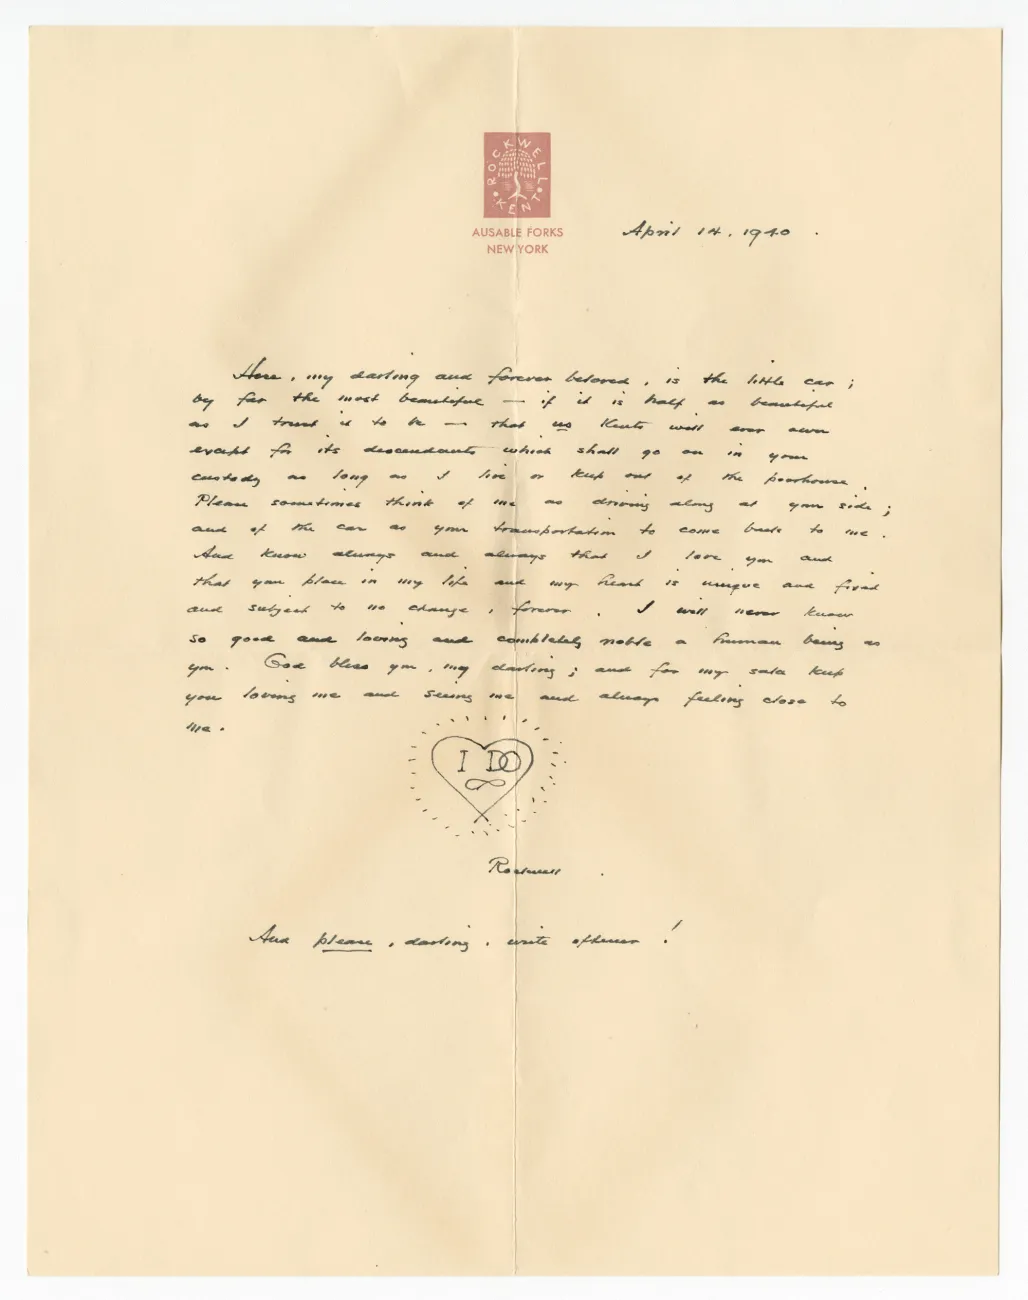 ROCKWELL KENT
AUSABLE FORKS
NEW YORK
April 14, 1940.
Here, my darling and forever beloved, is the little car;
by far the most beautiful — if it is half as beautiful
as I trust it to be — that us Kents will ever own
except for its descendants which shall go on in your
custody as long as I live or keep out of the poorhouse.
Please sometimes think of me as driving along at your side;
and of the car as your transportation to come back to me.
And know always and always that I love you and
that your place in my life and my heart is unique and fixed
and subject to no change, forever. I will never know
so good and loving and completely noble a human being as
you. God bless you, my darling; and for my sake keep
you loving me and seeing me and always feeling close to
me.
I DO
Rockwell
And please, darling, write oftener!